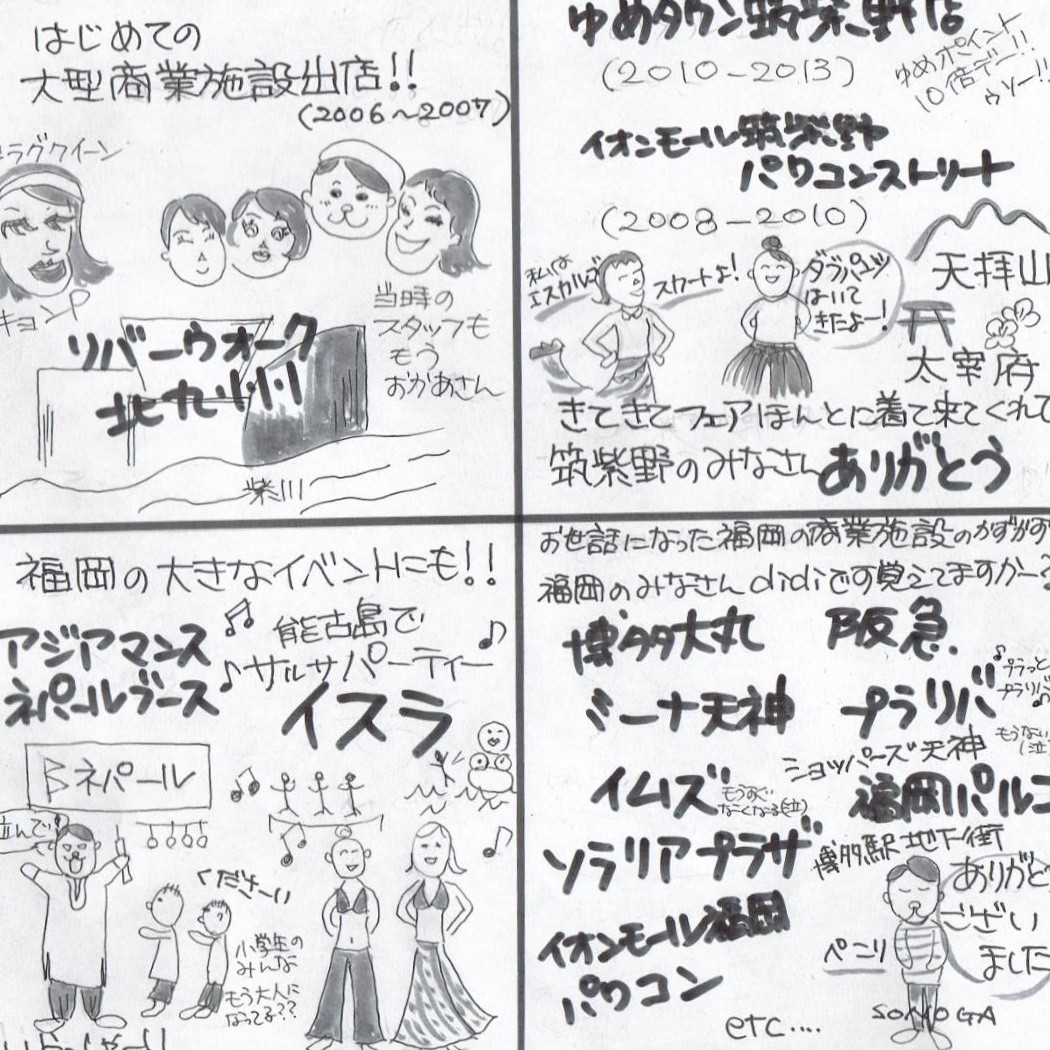 はじめての
大型商業施設出店!!
(2006～2007)
ラグクイーン
キョンP
当時の
スタッフも
もう
おかあさん
リバーウォーク
北九州
紫川
ゆめタウン筑紫野店
(2010-2013)
ゆめポイント
10倍デー!!
ゥソー!!
イオンモール筑紫野
パワコンストリート
(2008-2010)
私は
エスカルゴ
スカートよ!
ダブパンツ
はいて
きたよー!
天拝山
太宰府
きてきてフェアほんとに着て来てくれて
筑紫野のみなさんありがとう
福岡の大きなイベントにも!!
アジアマンス
ネパールブース
能古島で
サルサパーティー
イスラ
ネパール
並んで
くださーい
小学生の
みんな
もう大人に
なってる??
お世話になった福岡の商業施設のかずかず
福岡のみなさんdidiです覚えてますかー?
博多大丸
阪急
ミーナ天神
プラリバ
プラっと
プラリバ
もうない
(泣)
ショッパーズ天神
イムズ
もうすぐ
なくなる(泣)
福岡パルコ
ソラリアプラザ
博多駅地下街
イオンモール福岡
パワコン
etc....
ありがとう
ござい
ました
ペコリ
SONOGA